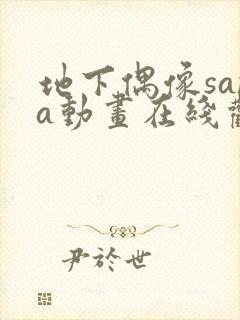 地下偶像sa
a動畫在綫
尹於世